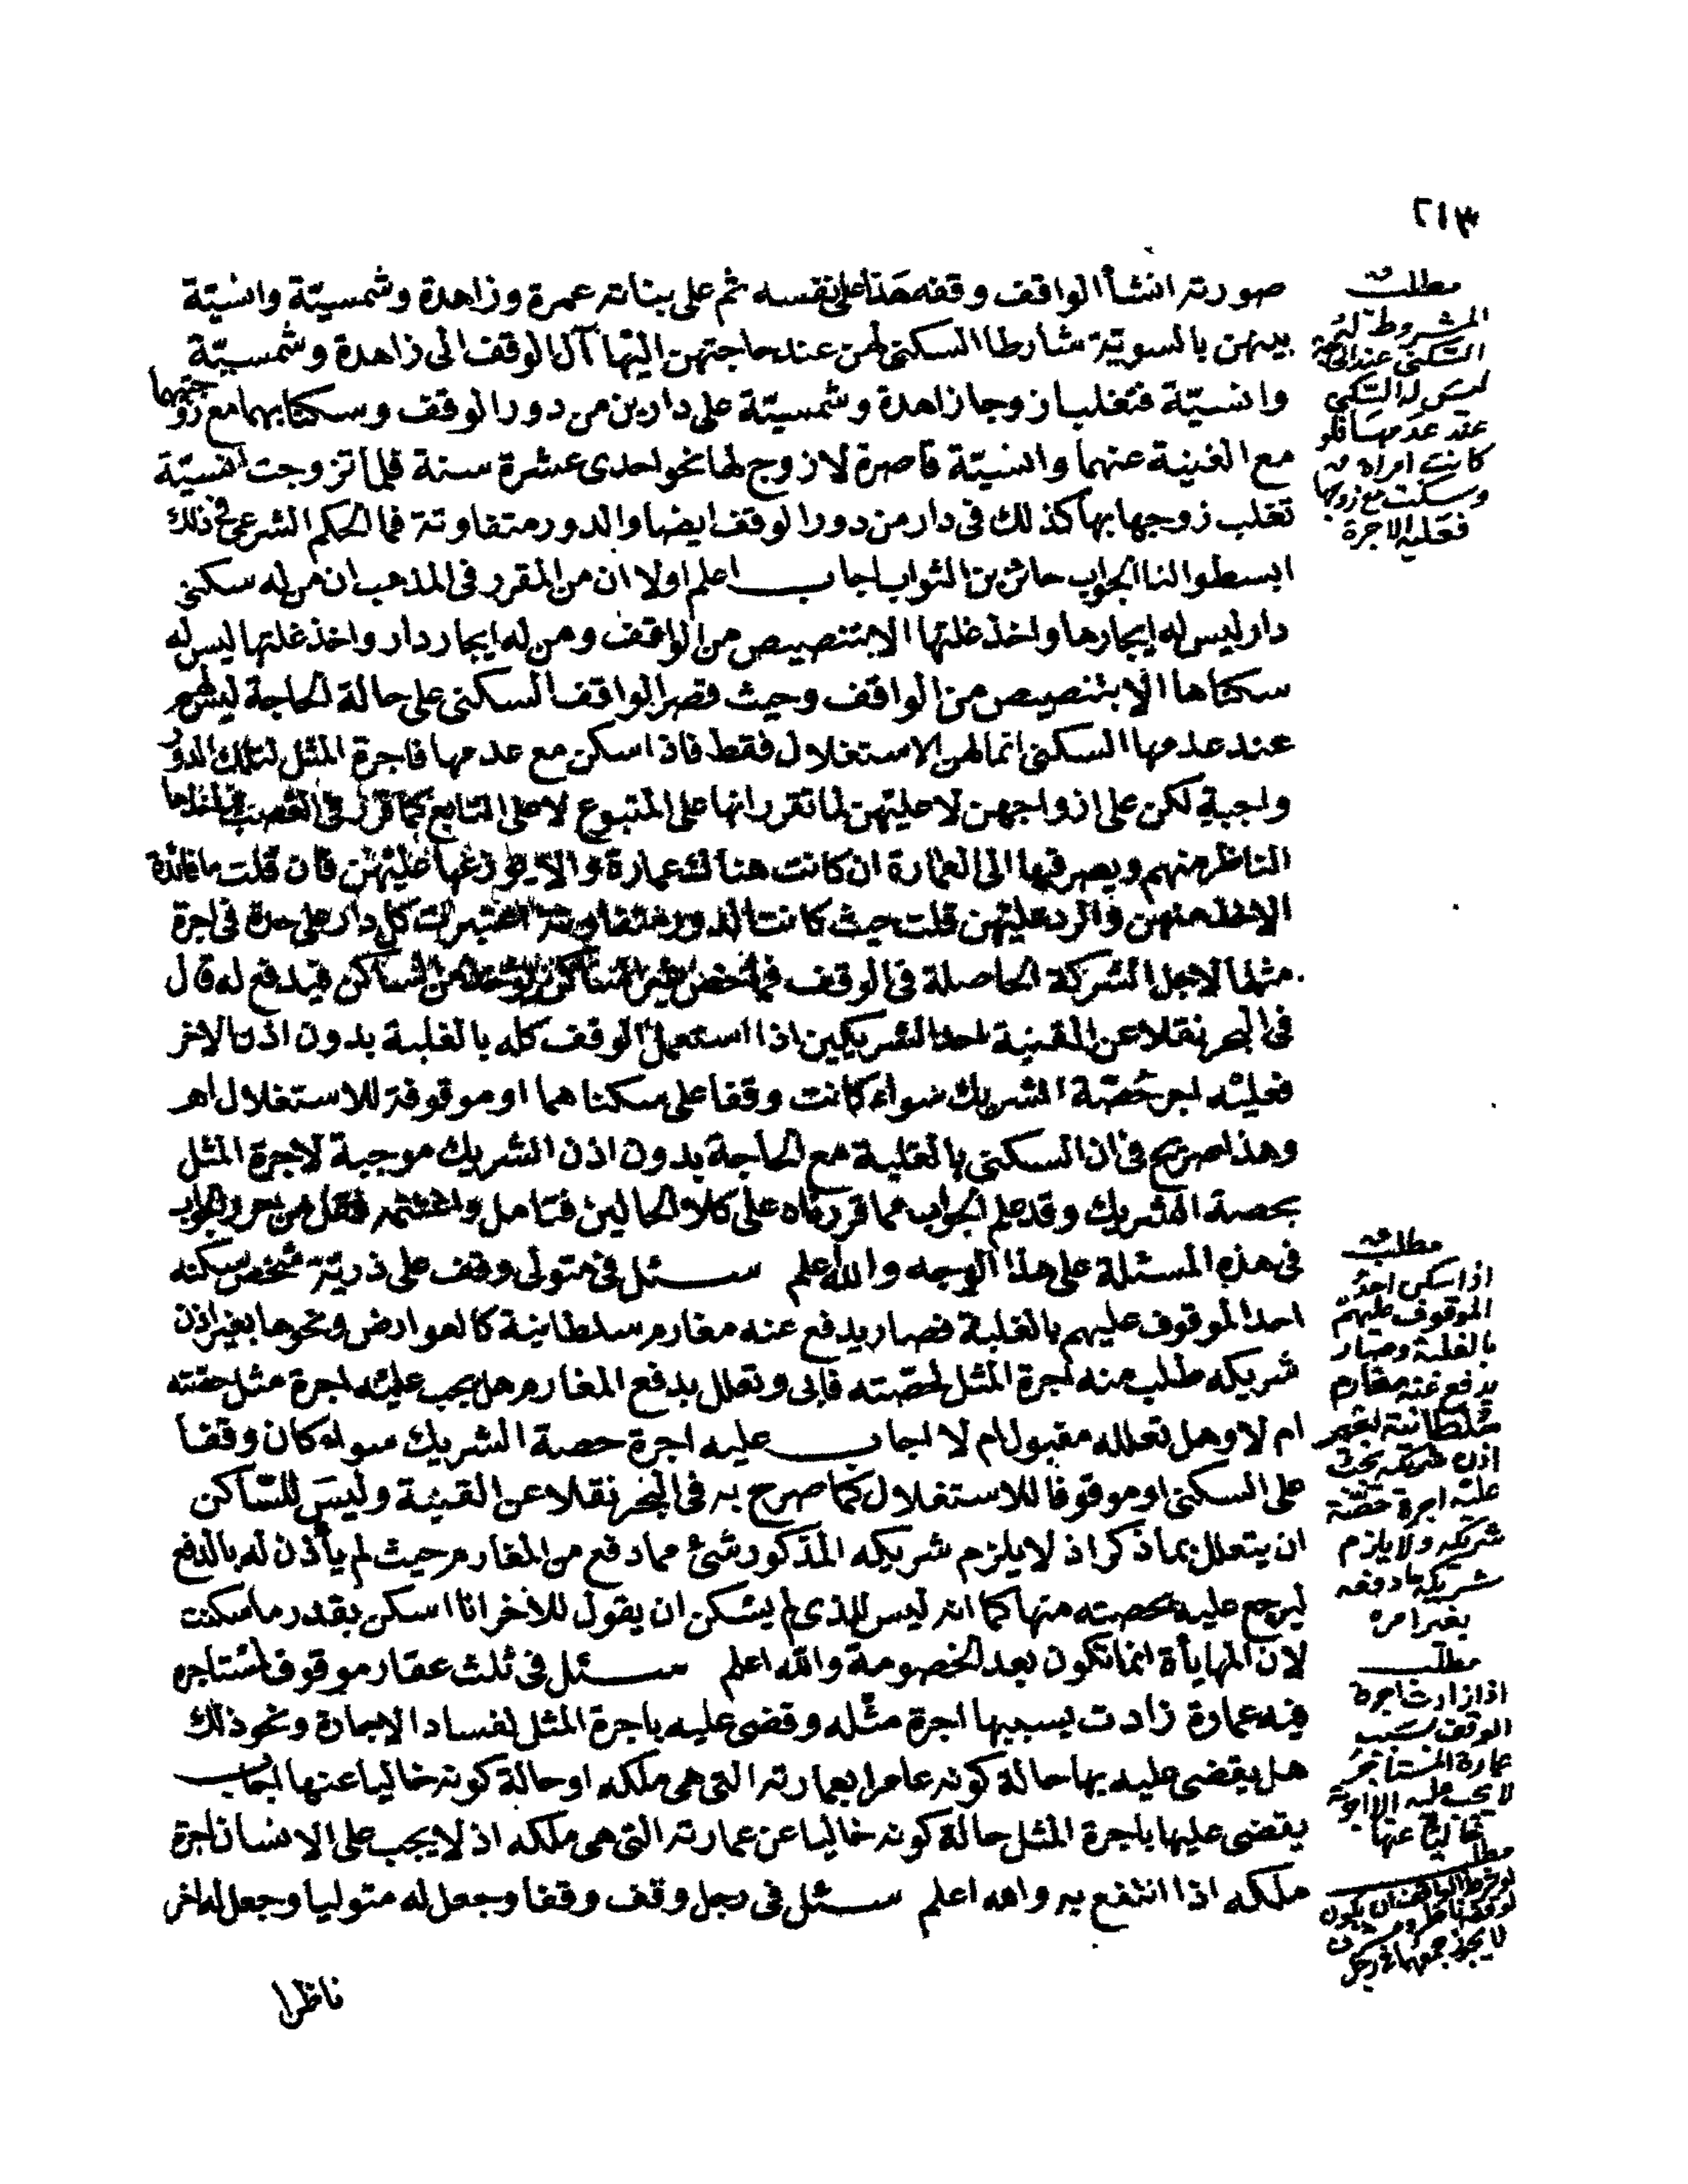 ٢١٣
صورته انشأ الواقف وقفه هذا على نفسه ثم على بناته عمرة وزاهدة وشمسيّة وانسيّة
بينهن بالسويّة شارطا السكنى لهن عند حاجتهن اليها آل الوقف الى زاهدة وشمسيّة
وانسيّة فتغلب زوجا زاهدة وشمسيّة على دارين من دور الوقف وسكنا بهما مع زوجتيهما
مع الغنية عنهما وانسيّة قاصرة لا زوج لها نحو احدى عشرة سنة فلما تزوجت انسيّة
تغلب زوجها بها كذلك فى دار من دور الوقف ايضا والدور متفاوتة فما الحكم الشرعى فى ذلك
ابسطوا لنا الجواب حائزين الثواب اجاب اعلم اولا ان من المقرر فى المذهب ان من له سكنى
دار ليس له ايجارها واخذ غلتها الا بتنصيص من الواقف ومن له ايجار دار واخذ غلتها ليس له
سكناها الا بتنصيص من الواقف وحيث قصر الواقف السكنى على حالة الحاجة ليس لهن
عند عدمها السكنى انما لهن الاستغلال فقط فاذا سكن مع عدمها فاجرة المثل لتلك الدور
واجبة لكن على ازواجهن لا عليهن لما تقرر انها على المتبوع لا على التابع كما قرر فى الغصب فياخذها
الناظر منهم ويصرفها الى العمارة ان كانت هناك عمارة والا يوزعها عليهن فان قلت ما فائدة
الاخذ منهن والرد عليهن قلت حيث كانت الدور متفاوتة اعتبرت كل دار على حدة فى اجرة
مثلها لاجل الشركة الحاصلة فى الوقف فما خص غير الساكن يوخذ من الساكن فيدفع له قال
فى البحر نقلا عن القنية احد الشريكين اذا استعمل الوقف كله بالغلبة بدون اذن الاخر
فعليه اجر حصّة الشريك سواء كانت وقفا على سكناهما او موقوفة للاستغلال اهـ
وهذا صريح فى ان السكنى بالغلبة مع الحاجة بدون اذن الشريك موجبة لاجرة المثل
بحصة الشريك وقد علم الجواب مما قررناه على كلا الحالين فتامل واغتنمه فقل من حرر الجواب
فى هذه المسئلة على هذا الوجه والله اعلم سئل فى متولى وقف على ذريّة شخص سكنه
احد الموقوف عليهم بالغلبة فصار يدفع عنه مغارم سلطانية كالعوارض ونحوها بغير اذن
شريكه طلب منه اجرة المثل لحصّته فابى وتعلل بدفع المغارم هل يجب عليه اجرة مثل حصّته
ام لا وهل تعلله مقبول ام لا اجاب عليه اجرة حصة الشريك سواء كان وقفا
على السكنى او موقوفا للاستغلال كما صرح به فى البحر نقلا عن القنية وليس للسّاكن
ان يتعلل بما ذكر اذ لا يلزم شريكه المذكور شئ مما دفع من المغارم حيث لم يأذن له بالدفع
ليرجع عليه بحصته منها كما انه ليس للذى لم يسكن ان يقول للآخر انا اسكن بقدر ما سكنت
لان المهايأة انما تكون بعد الخصومة والله اعلم سئل فى ثلث عقار موقوف استاجره
فيه عمارة زادت بسببها اجرة مثله وقضى عليه باجرة المثل لفساد الاجارة ونحو ذلك
هل يقضى عليه بها حالة كونه عامرا بعمارته التى هى ملكه او حالة كونه خاليا عنها اجاب
يقضى عليها باجرة المثل حالة كونه خاليا عن عمارته التى هى ملكه اذ لا يجب على الانسان اجرة
ملكه اذا انتفع به والله اعلم سئل فى رجل وقف وقفا وجعل له متوليا وجعل له اخر
ناظرا
مطلب
المشروط له
السكنى عند الحاجة
ليس له السكنى
عند عدمها فلو
كانت امراة
وسكنت مع زوجها
فعليه الاجرة
مطلب
اذا سكن احد
الموقوف عليهم
بالغلبة وصار
يدفع عنه مغارم
سلطانية بغير
اذن شريكه يجب
عليه اجرة حصّة
شريكه ولا يلزم
شريكه ما دفعه
بغير امره
مطلب
اذا زادت اجرة
الوقف بسبب
عمارة المستاجر
لا يجب عليه الا اجرته
خاليا عنها
مطلب
لو شرط الواقف ان يكون
لوقفه ناظر
لا يجوز جمعهما فى رجل